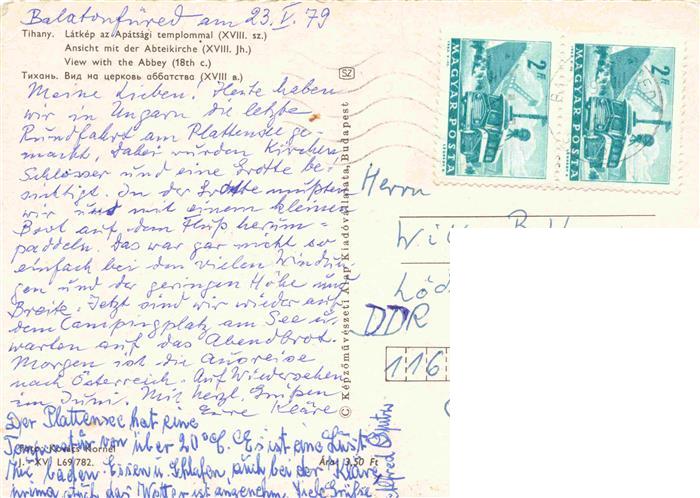 Balatonfüred am 23.V.79
Tihany. Látkép az Apátsági templommal (XVIII. sz.)
Ansicht mit der Abteikirche (XVIII. Jh.)
View with the Abbey (18th c.)
Тихань. Вид на церковь аббатства (XVIII в.)
SZ
Meine Lieben! Heute haben
wir in Ungarn die letzte
Rundfahrt am Plattensee ge-
macht, dabei wurden Kirchen,
Schlösser und eine Grotte be-
sichtigt. In der Grotte mußten
wir uns mit einem kleinen
Boot auf dem Fluß herum-
paddeln. Das war gar nicht so
einfach bei den vielen Windun-
gen und der geringen Höhe und
Breite. Jetzt sind wir wieder auf
dem Campingplatz am See u.
warten auf das Abendbrot.
Morgen ist die Ausreise
nach Österreich. Auf Wiedersehen
im Juni. Mit herzl. Grüßen
Eure Kläre
Der Plattensee hat eine
Temperatur von über 20°C. Es ist eine Lust
zu baden. Essen u. Schlafen, auch bei der Kläre
prima, auch das Wetter ist angenehm. Viele Grüße
Alfred
Foto: Kovács Kornél
I.-XV. L69/782.
Ára: 3,50 Ft
© Képzőművészeti Alap Kiadóvállalata, Budapest
2 Ft
MAGYAR POSTA
2 Ft
MAGYAR POSTA
Herrn
DDR
116